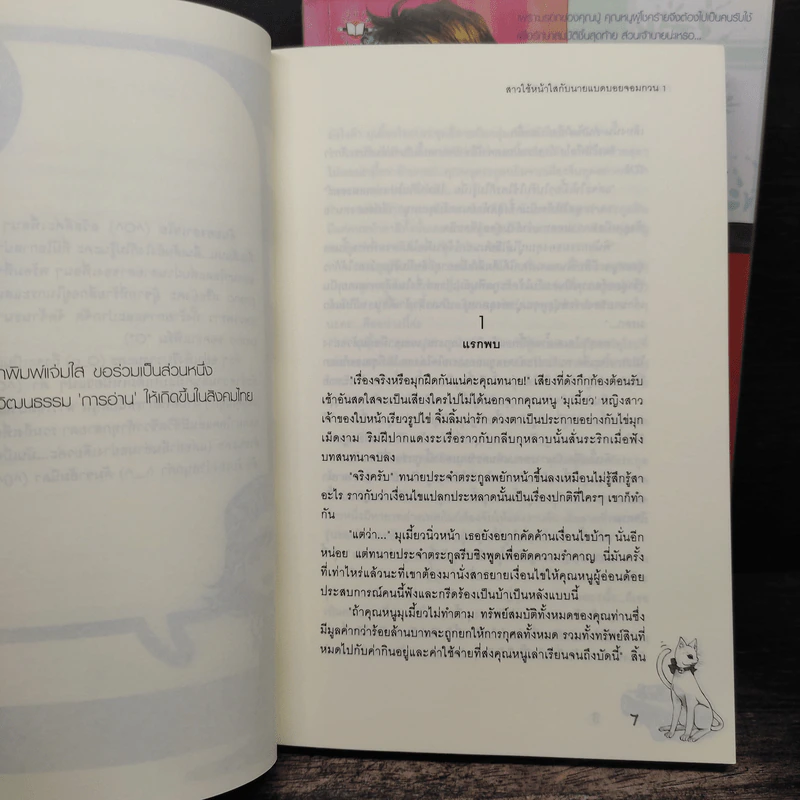 เพราะมรดกของคุณปู่ คุณหนูผู้ใจร้ายจึงต้องไปเป็นคนรับใช้
เพื่อรักษาสมบัติชิ้นสุดท้าย ส่วนเจ้านายน่ะเหรอ...
สาวใช้หน้าใสกับนายแบดบอยจอมกวน 1
พิมพ์แจ่มใส ขอร่วมเป็นส่วนหนึ่ง
วัฒนธรรม 'การอ่าน' ให้เกิดขึ้นในสังคมไทย
1
แรกพบ
"เรื่องจริงหรือมุกฝืดกันแน่คะคุณทนาย!" เสียงที่ดังกึกก้องต้อนรับ
เช้าอันสดใสจะเป็นเสียงใครไปไม่ได้นอกจากคุณหนู 'มุเมี้ยว' หญิงสาว
เจ้าของใบหน้าเรียวรูปไข่ จิ้มลิ้มน่ารัก ดวงตาเป็นประกายอย่างกับไข่มุก
เม็ดงาม ริมฝีปากแดงระเรื่อราวกับกลีบกุหลาบนั้นสั่นระริกเมื่อฟัง
บทสนทนาจบลง
"จริงครับ" ทนายประจำตระกูลพยักหน้าขึ้นลงเหมือนไม่รู้สึกรู้สา
อะไร ราวกับว่าเงื่อนไขแปลกประหลาดนั้นเป็นเรื่องปกติที่ใครๆ เขาก็ทำ
กัน
"แต่ว่า..." มุเมี้ยวนิ่วหน้า เธอยังอยากคัดค้านเงื่อนไขบ้าๆ นั่นอีก
หน่อย แต่ทนายประจำตระกูลรีบชิงพูดเพื่อตัดความรำคาญ นี่มันครั้ง
ที่เท่าไหร่แล้วนะที่เขาต้องมานั่งสาธยายเงื่อนไขให้คุณหนูผู้อ่อนด้อย
ประสบการณ์คนนี้ฟังและกรีดร้องเป็นบ้าเป็นหลังแบบนี้
"ถ้าคุณหนูมุเมี้ยวไม่ทำตาม ทรัพย์สมบัติทั้งหมดของคุณท่านซึ่ง
มีมูลค่ากว่าร้อยล้านบาทจะถูกยกให้การกุศลทั้งหมด รวมทั้งทรัพย์สินที่
หมดไปกับค่ากินอยู่และค่าใช้จ่ายที่ส่งคุณหนูเล่าเรียนจนถึงบัดนี้" สิ้น
7